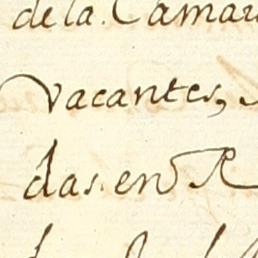 de la Camar
vacantes,
das en R